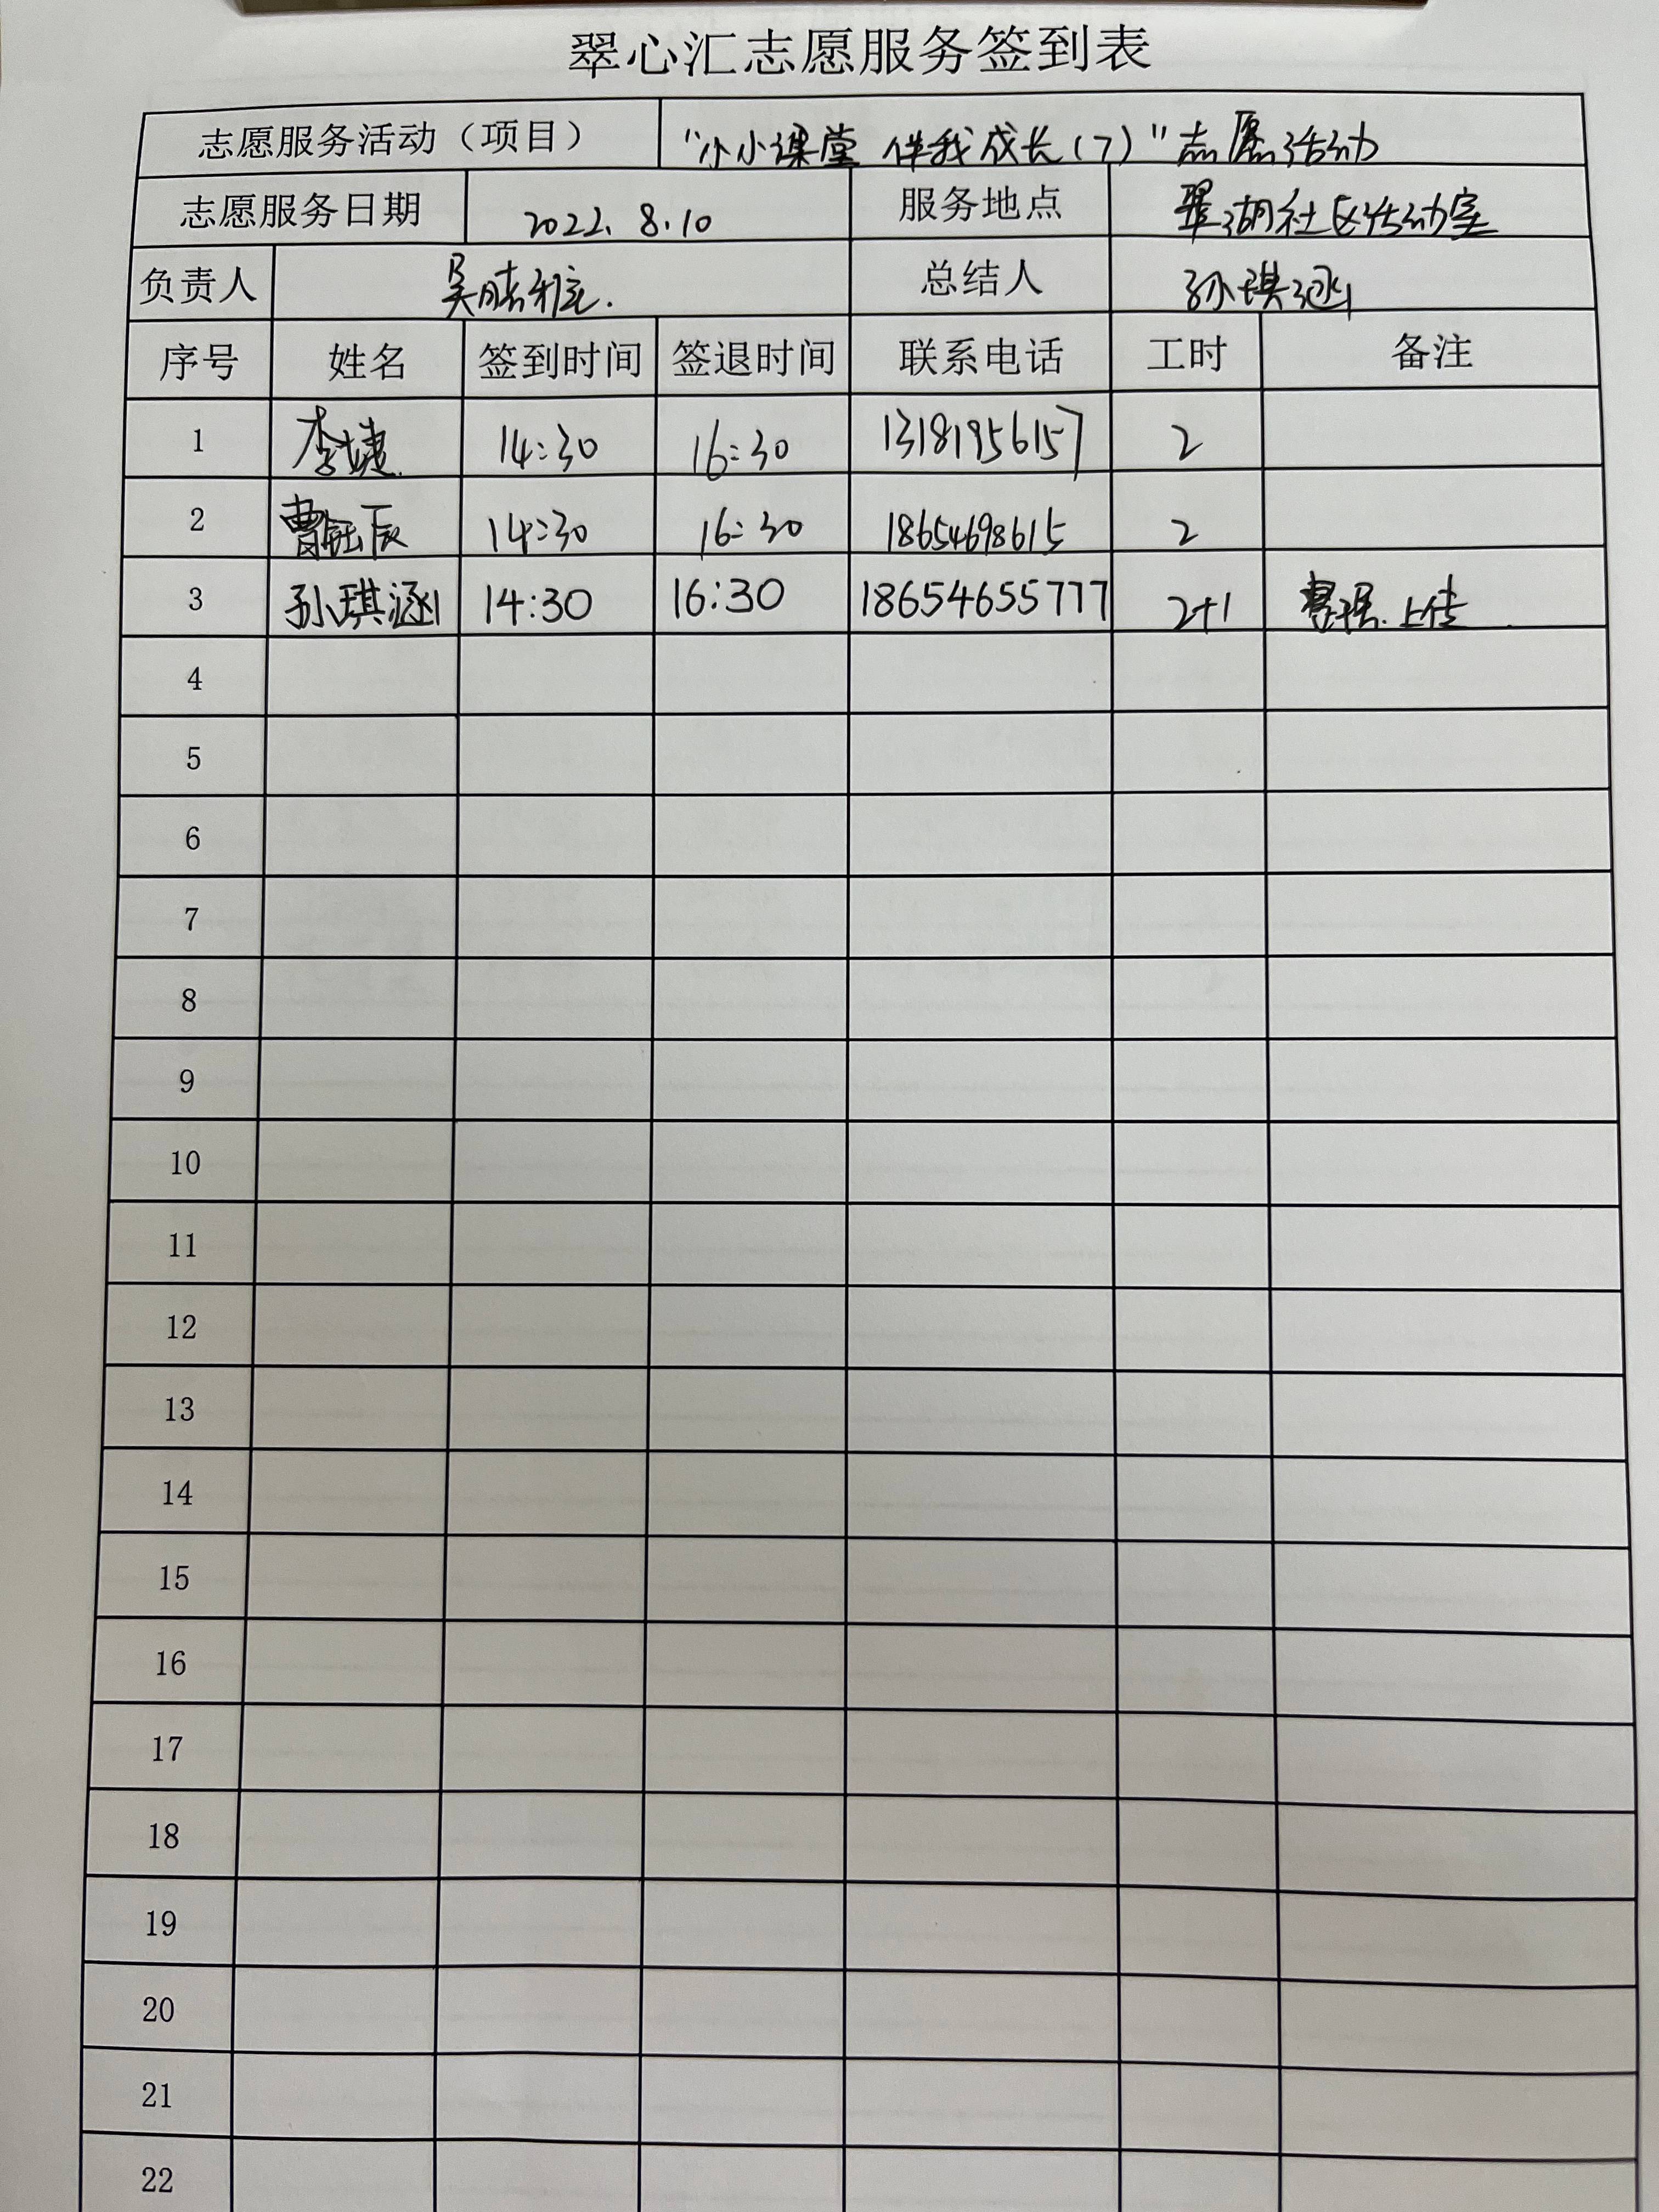 翠心汇志愿服务签到表
志愿服务活动（项目） "小小课堂 伴我成长（7）"志愿活动
志愿服务日期 2022.8.10 服务地点 翠湖社区活动室
负责人 吴 总结人 孙琪涵
序号 姓名 签到时间 签退时间 联系电话 工时 备注
1 李婕 14:30 16:30 13181956157 2
2 曹钰辰 14:30 16:30 18654698615 2
3 孙琪涵 14:30 16:30 18654655777 2+1 整理.上传
4
5
6
7
8
9
10
11
12
13
14
15
16
17
18
19
20
21
22